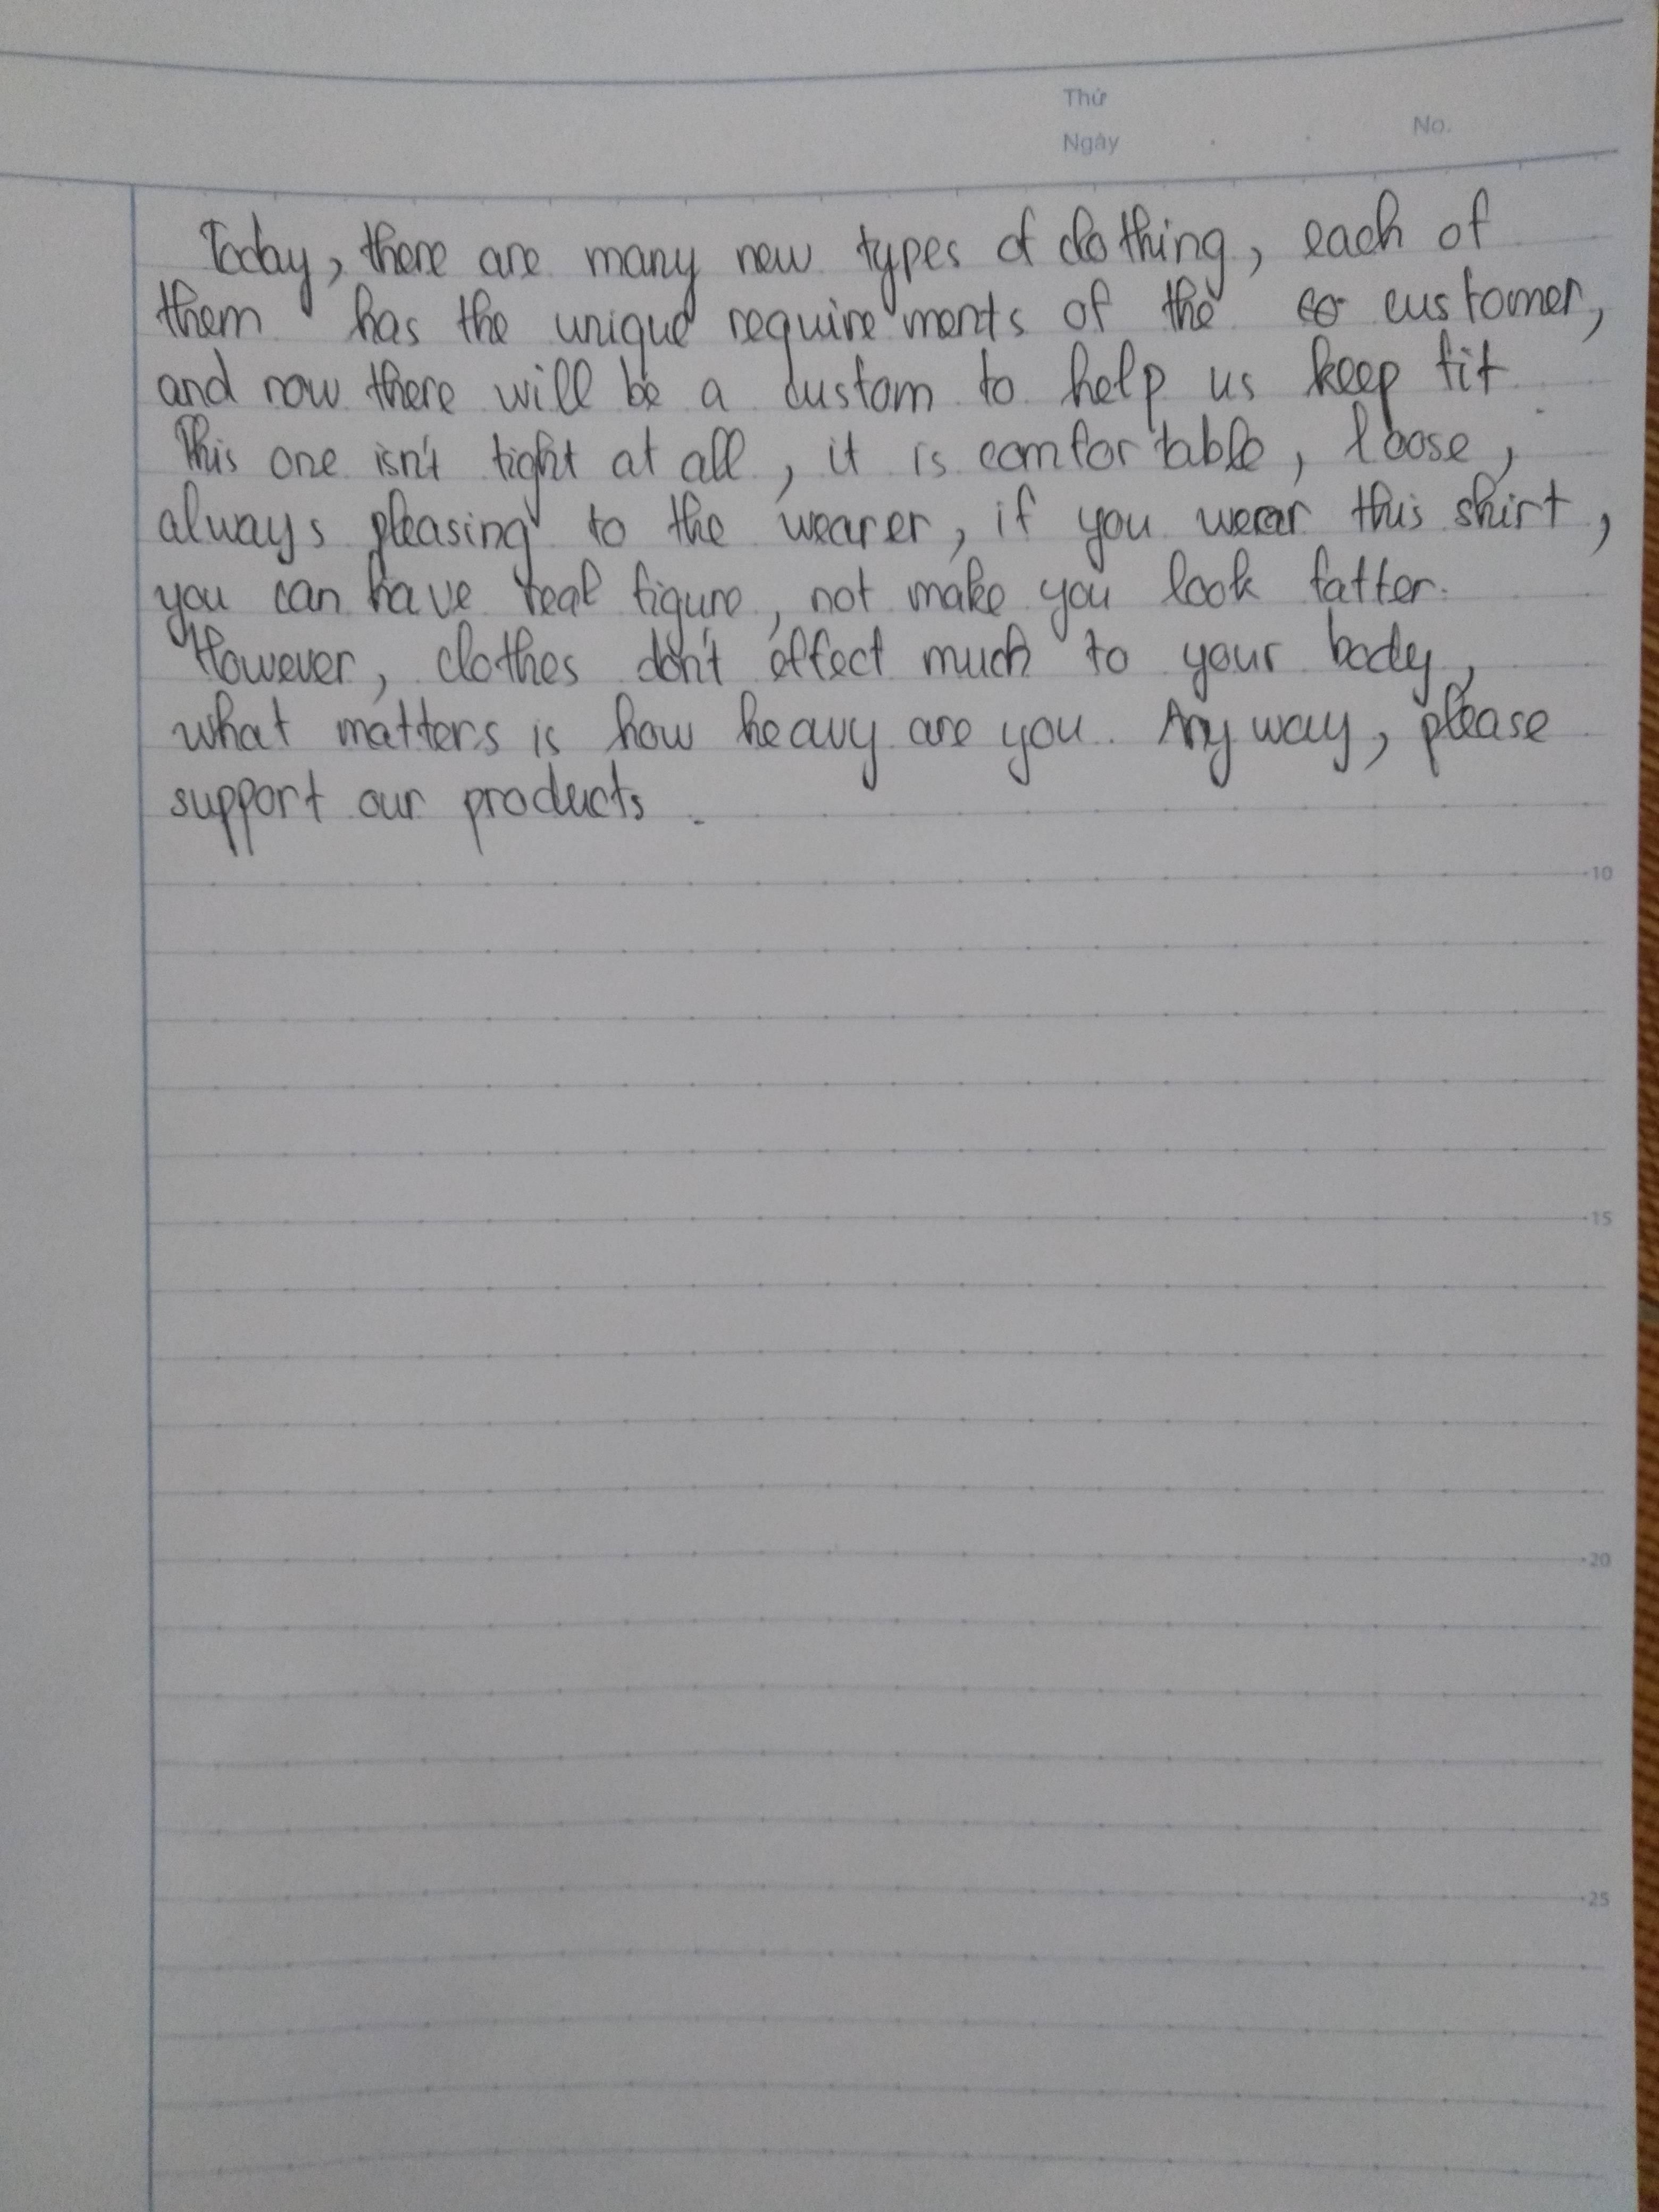 Thứ
Ngày
No.
Today, there are many new types of clothing, each of
them has the unique requirements of the customer,
and now there will be a custom to help us keep fit.
This one isn't tight at all, it is comfortable, loose,
always pleasing to the wearer, if you wear this shirt,
you can have real figure, not make you look fatter.
However, clothes don't effect much to your body,
what matters is how heavy are you. Any way, please
support our products.
10
15
20
25